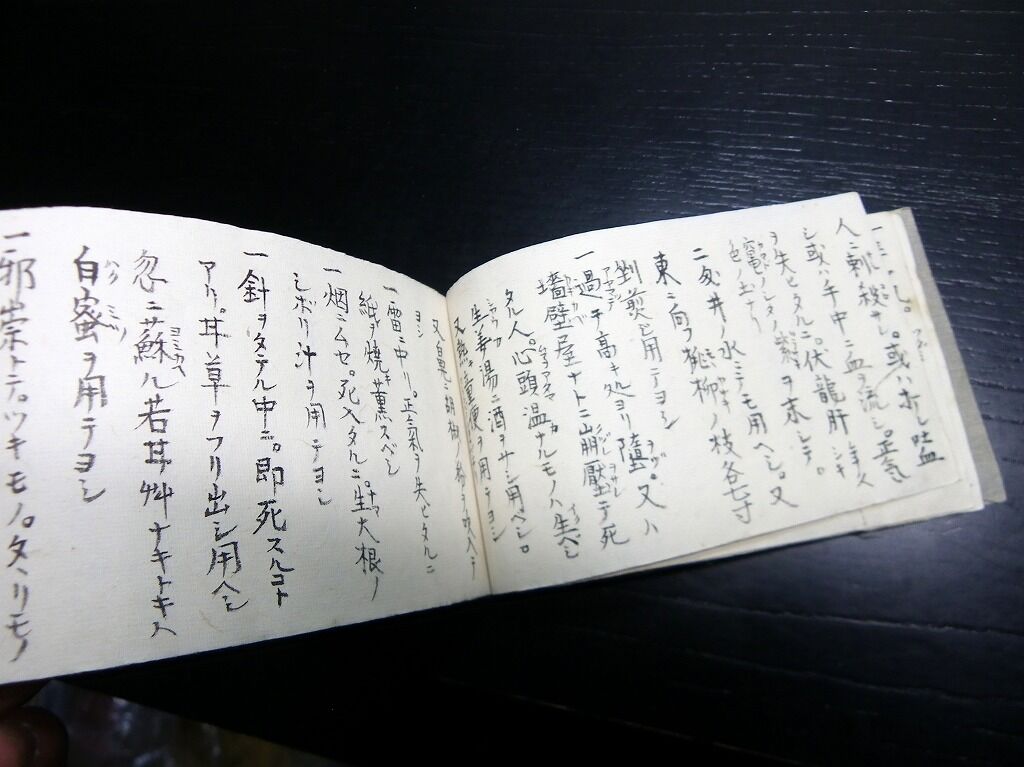 人ニ刺殺サレ。或ハ折レ吐血
シ或ハ卒中ニ血ヲ流シ。正氣
ヲ失ヒタルニ。伏龍肝
竈ノシタノ
色ノ土ナリ
ヲ末シテ。
井ノ水ニテモ用ヘシ。又
東ニ向フ桃柳ノ枝各七寸
剉煎シ用テヨシ
一過チ高キ処ヨリ墮。又ハ
墻壁屋ナトニ崩壓テ死
タル人。心頭温ナルモノハ生ベシ
生姜湯ニ酒ヲサシ用ヘシ。
又熱キ童便ヲ用テヨシ
ヨシ
一雷ニ中リ。正氣ヲ失ヒタルニ
紙ヲ焼キ薫スベシ
一烟ニムセ。死入タルニ。生大根ノ
シボリ汁ヲ用テヨシ
一針ヲタテル中ニ。即死スルコト
アリ。甘草ヲフリ出シ用ヘシ
忽ニ蘇ル若甘艸ナキトキハ
白蜜ヲ用テヨシ
一邪祟トテ。ツキモノ。タヽリモノ